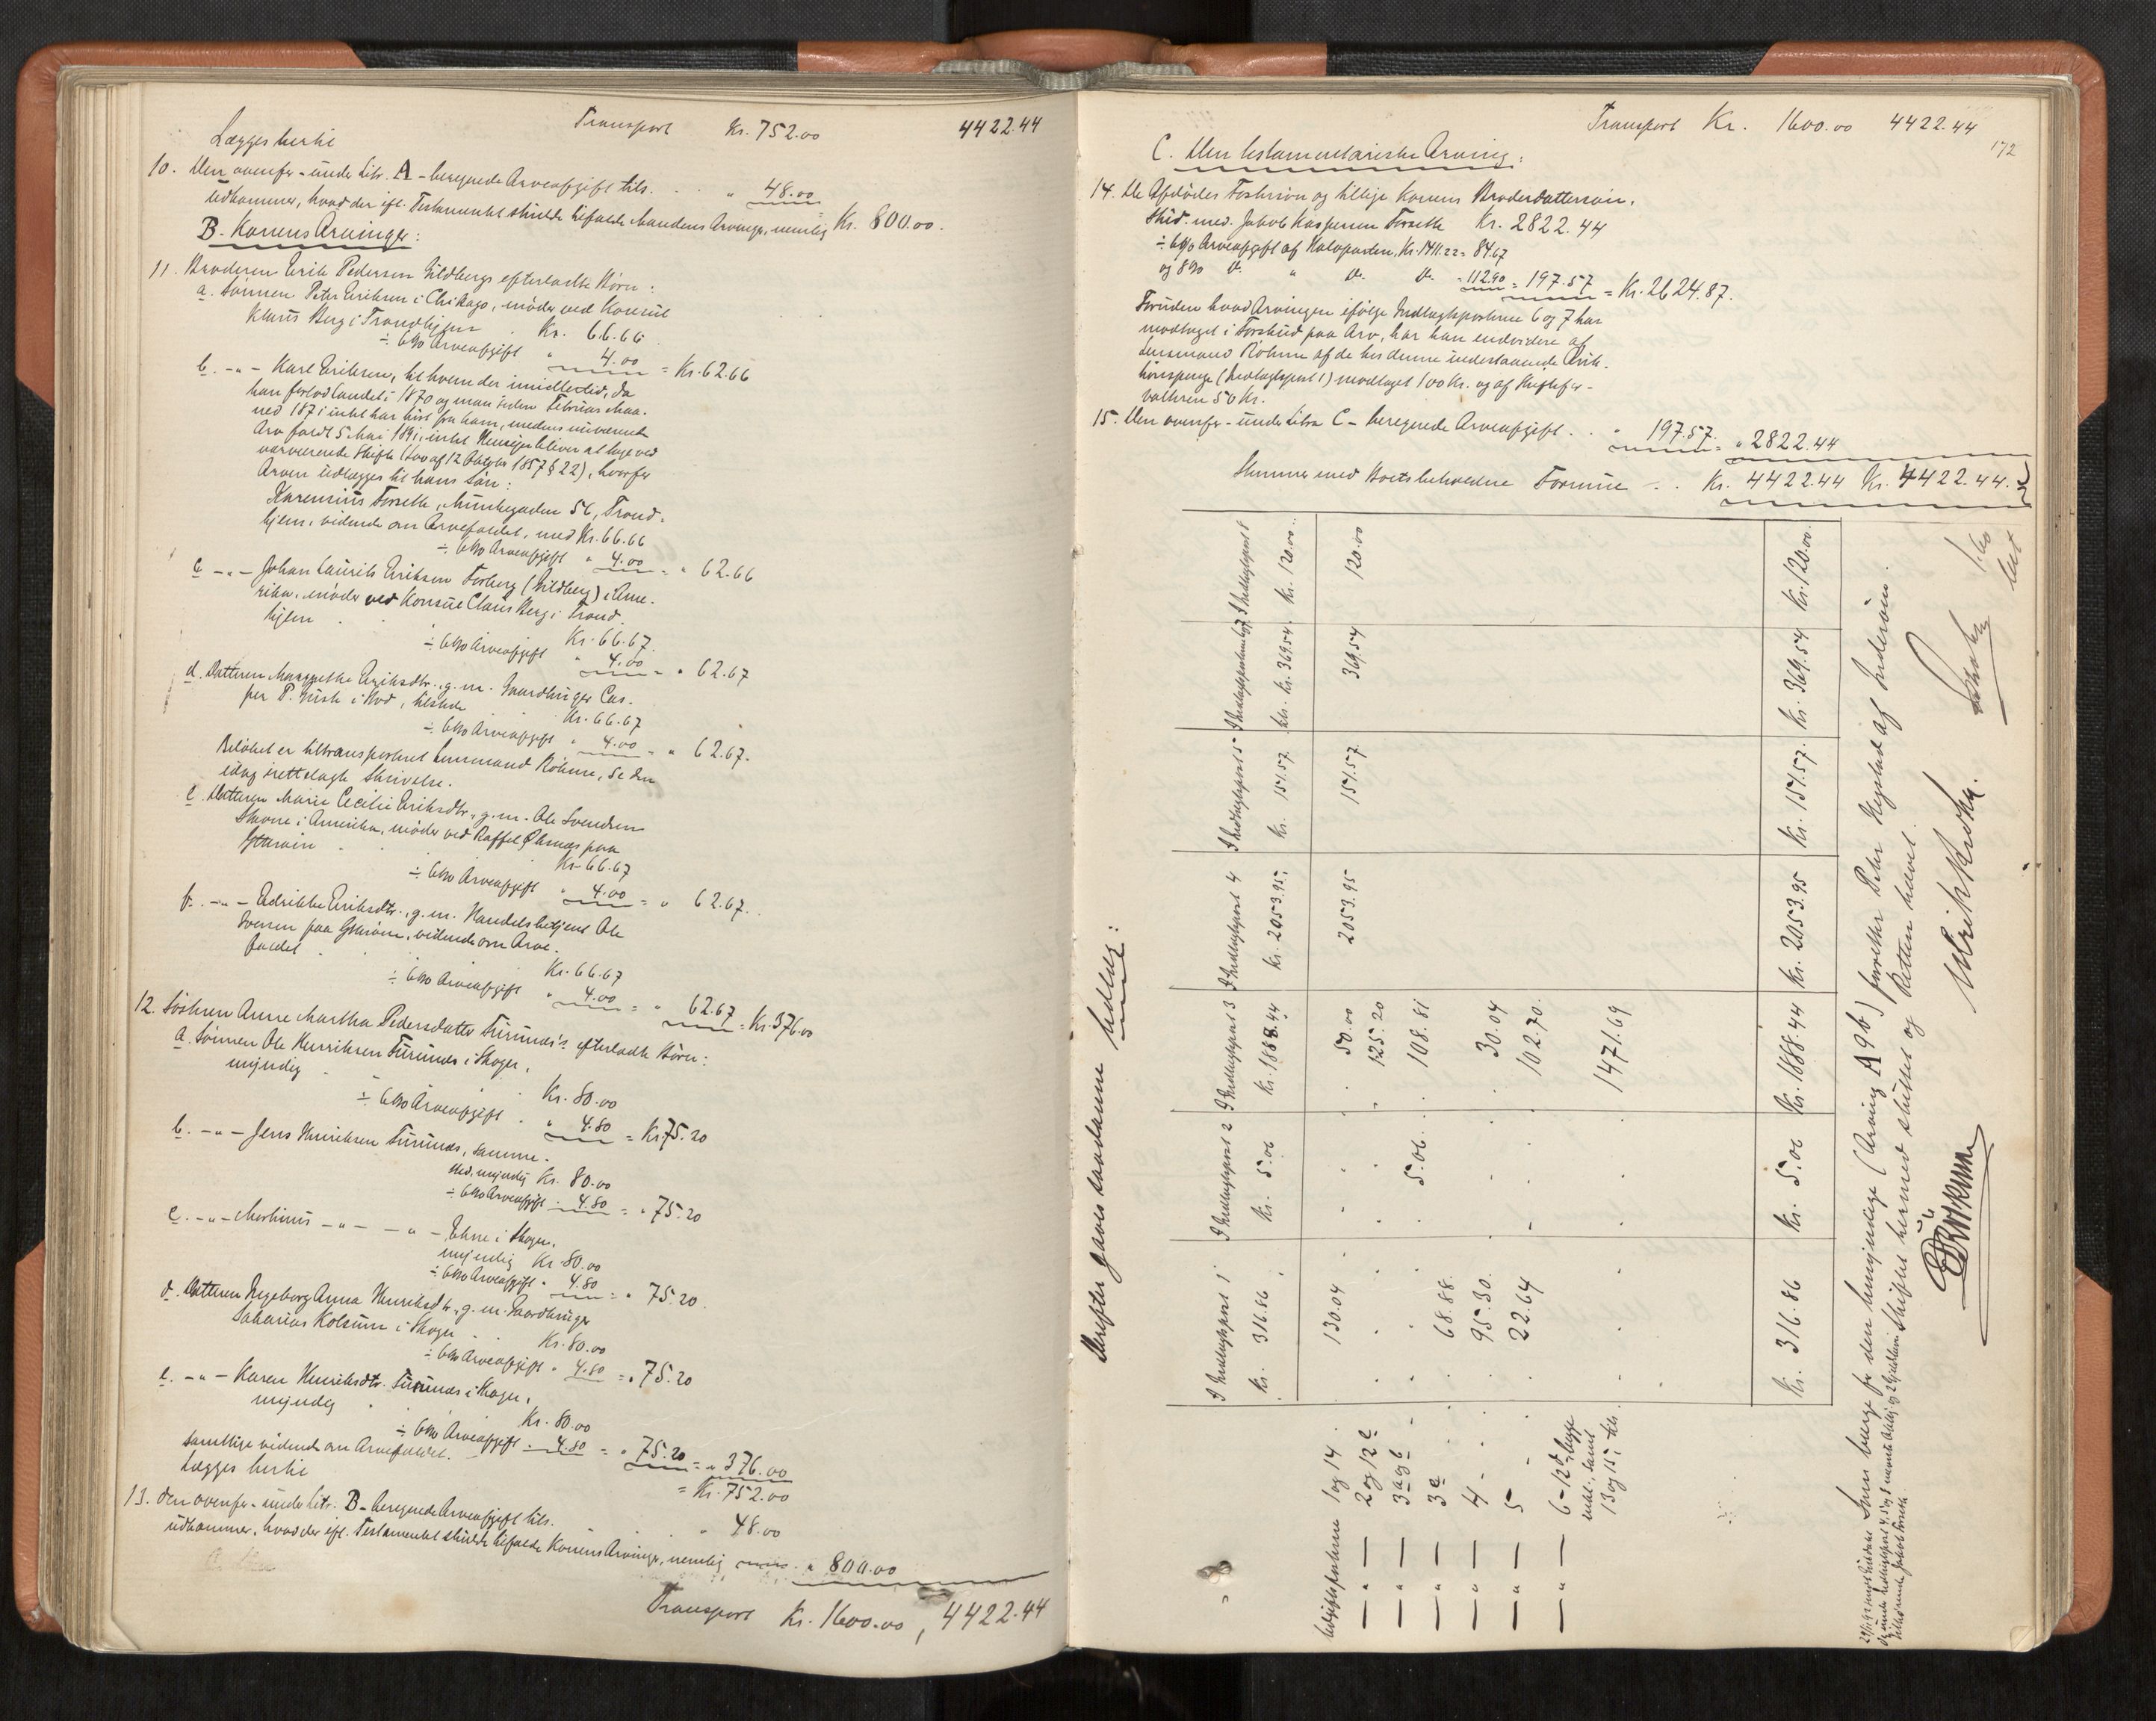 Transport Kr. 752.00 4422.44
Lægges hertil
10. Den ovenfor under Litr. A - beregnede Arveafgift tils. " 48.00
udkommer, hvad der ifl. Testamentet skulde tilfalde Mandens Arvinger, nemlig Kr. 800.00.
B. Konens Arvinger:
11. Broderen Erik Pedersen Sildbergs efterladte Børn:
a. Sønnen Peter Eriksen i Chikago, møder ved Konsul
Klaus Berg i Trondhjem Kr. 66.66
÷ 6% Arveafgift " 4.00 = Kr. 62.66
b. -"- Karl Eriksen, til hvem der imidlertid, da
han forlod Landet i 1870 og man siden Februar Maa-
ned 1871 intet har hørt fra ham, medens nuværende
Arv faldt 5 Mai 1891, intet Hensyn bliver at tage ved
nærværende Skifte (Lov af 12 Oktober 1857 § 22), hvorfor
Arven udlægges til hans Søn:
Karenius Forseth, Munkegaden 56, Trond-
hjem, vidende om Arvefaldet, med Kr. 66.66
÷ 6% Arveafgift " 4.00 = " 62.66
c -"- Johan Laurits Eriksen Forberg (Sildberg) i Ame-
rika, møder ved Konsul Claus Berg i Trond-
hjem Kr. 66.67
÷ 6% Arveafgift " 4.00 = " 62.67
d. Datteren Margrethe Eriksdtr. g. m. Gaardbruger Cas-
per P. i Kvd, tilstede
Kr. 66.67
÷ 6% Arveafgift " 4.00 = " 62.67.
Beløbet er tiltransporteret Lensmand Röhme, se den
idag fremlagte Skrivelse.
e. Datteren Marie Cecilie Eriksdtr., g. m. Ole Svendsen
i Amerika, møder ved Raffel Ølsnæs paa
Ytterøen
Kr. 66.67
÷ 6% Arveafgift " 4.00 = " 62.67.
f. -"- Edrikke Eriksdtr., g. m. Handelsbetjent Ole
Svensen paa Ytterøen, vidende om Arve-
faldet
Kr. 66.67
÷ 6% Arveafgift " 4.00 = " 62.67 = Kr. 376.00
12. Søsteren Anne Martha Pedersdatter Furunes's efterladte Børn:
a. Sønnen Ole Henriksen Furunes i Skogn,
myndig
Kr. 80.00
÷ 6% Arveafgift " 4.80 = Kr. 75.20
b. -"- Jens Henriksen Furunes, samme-
sted. myndig Kr. 80.00
÷ 6% Arveafgift " 4.80 = " 75.20
c. -"- Morthinus -"- -"- Ekne i Skogn,
myndig Kr. 80.00
÷ 6% Arveafgift " 4.80 = " 75.20.
d. Datteren Ingeborg Anna Henriksdtr., g. m. Gaardbruger
Sakarias Kolsum i Skogn
Kr. 80.00
÷ 6% Arveafgift " 4.80 = " 75.20
e. -"- Karen Henriksdtr. Furunes i Skogn,
myndig
Kr. 80.00
÷ 6% Arveafgift " 4.80 = " 75.20 = " 376.00
samtlige vidende om Arvefaldet. = Kr. 752.00
Lægges hertil
13. den ovenfor under Litr. B - beregnede Arveafgift tils. " 48.00
udkommer, hvad der ifl. Testamentet skulde tilfalde Konens Arvinger, nemlig " 800.00
Transport Kr. 1600.00, 4422.44
Transport Kr. 1600.00 4422.44
172
C. Den testamentariske Arving:
14. De Afdødes Fostersøn og tillige Konens Broderdattersøn,
Stud. med. Jakob Kaspersen Forseth Kr. 2822.44
÷ 6% Arveafgift af Halvparten, Kr. 1411.22 = 84.67
og 8% do. " do. do. - 112.90 = 197.57 = Kr. 2624.87.
Foruden hvad Arvingen ifølge Indtægtsposterne 6 og 7 har
modtaget i Forskud paa Arv, har han endvidere af
Lensmand Röhme af de hos denne indestaaende Auk-
tionspenge (Indtægtspost 1) modtaget 100 Kr. og af Skiftefor-
valteren 50 Kr.
15. Den ovenfor under Litra C - beregnede Arveafgift . . " 197.57. " 2822.44
Stemmer med Boets beholdne Formue . . Kr. 4422.44 Kr. 4422.44.
Derefter gaves saadanne Udlæg:
I Indtægtspost 1 I Indtægtspost 2 I Indtægtspost 3 I Indtægtspost 4 I Indtægtspost 5 I Indtægtsposterne 6 og 7 I Indtægtspost 8
Kr. 316.86 Kr. 5.06 Kr. 1888.44 Kr. 2053.95 Kr. 157.57. Kr. 369.54. Kr. 120.00.
Udgiftsposterne 1 og 14 130.04 50.00 2053.95 157.57 369.54 120.00
—"— 2 og 12c 125.20
—"— 3 a og b 5.06 108.81
—"— 3 c 68.88
—"— 4 95.30 30.04
—"— 5 22.64 102.70
—"— 6 - 12 d begge
inkl., samt
13 og 15, tils. 1471.69
Kr. 316.86 Kr. 5.06 Kr. 1888.44 Kr. 2053.95 Kr. 157.57. Kr. 369.54 Kr. 120.00
Som Værge for den umyndige (Arving A 9 b) Peter af Inderøen.
Skiftet hermed sluttet og Retten hævet.
Röhme